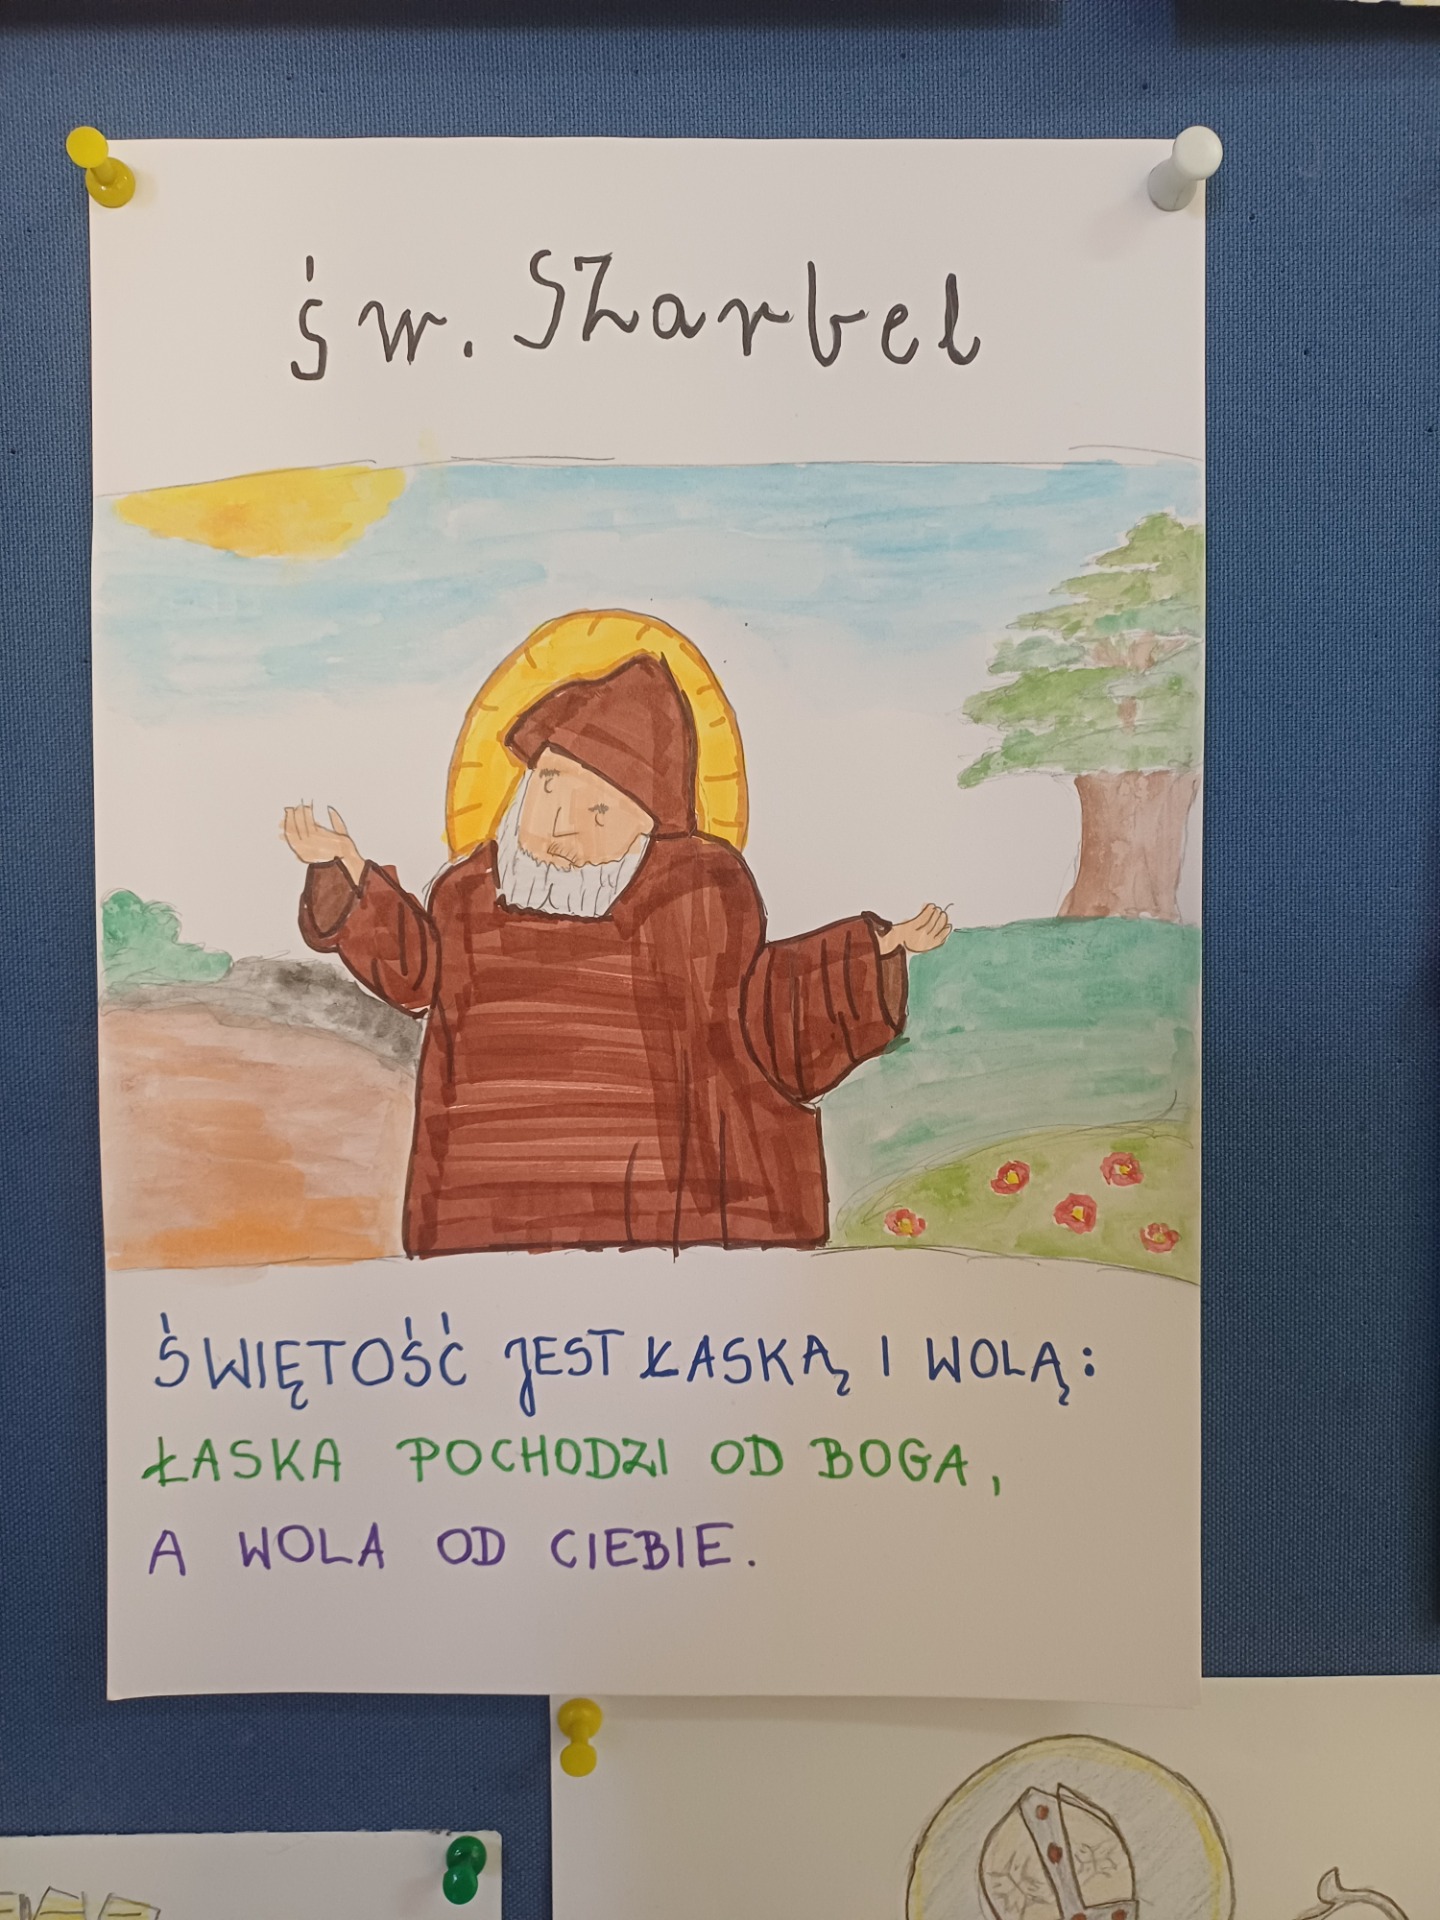 św. SZarbel
ŚWIĘTOŚĆ JEST ŁASKĄ I WOLĄ:
ŁASKA POCHODZI OD BOGA,
A WOLA OD CIEBIE.